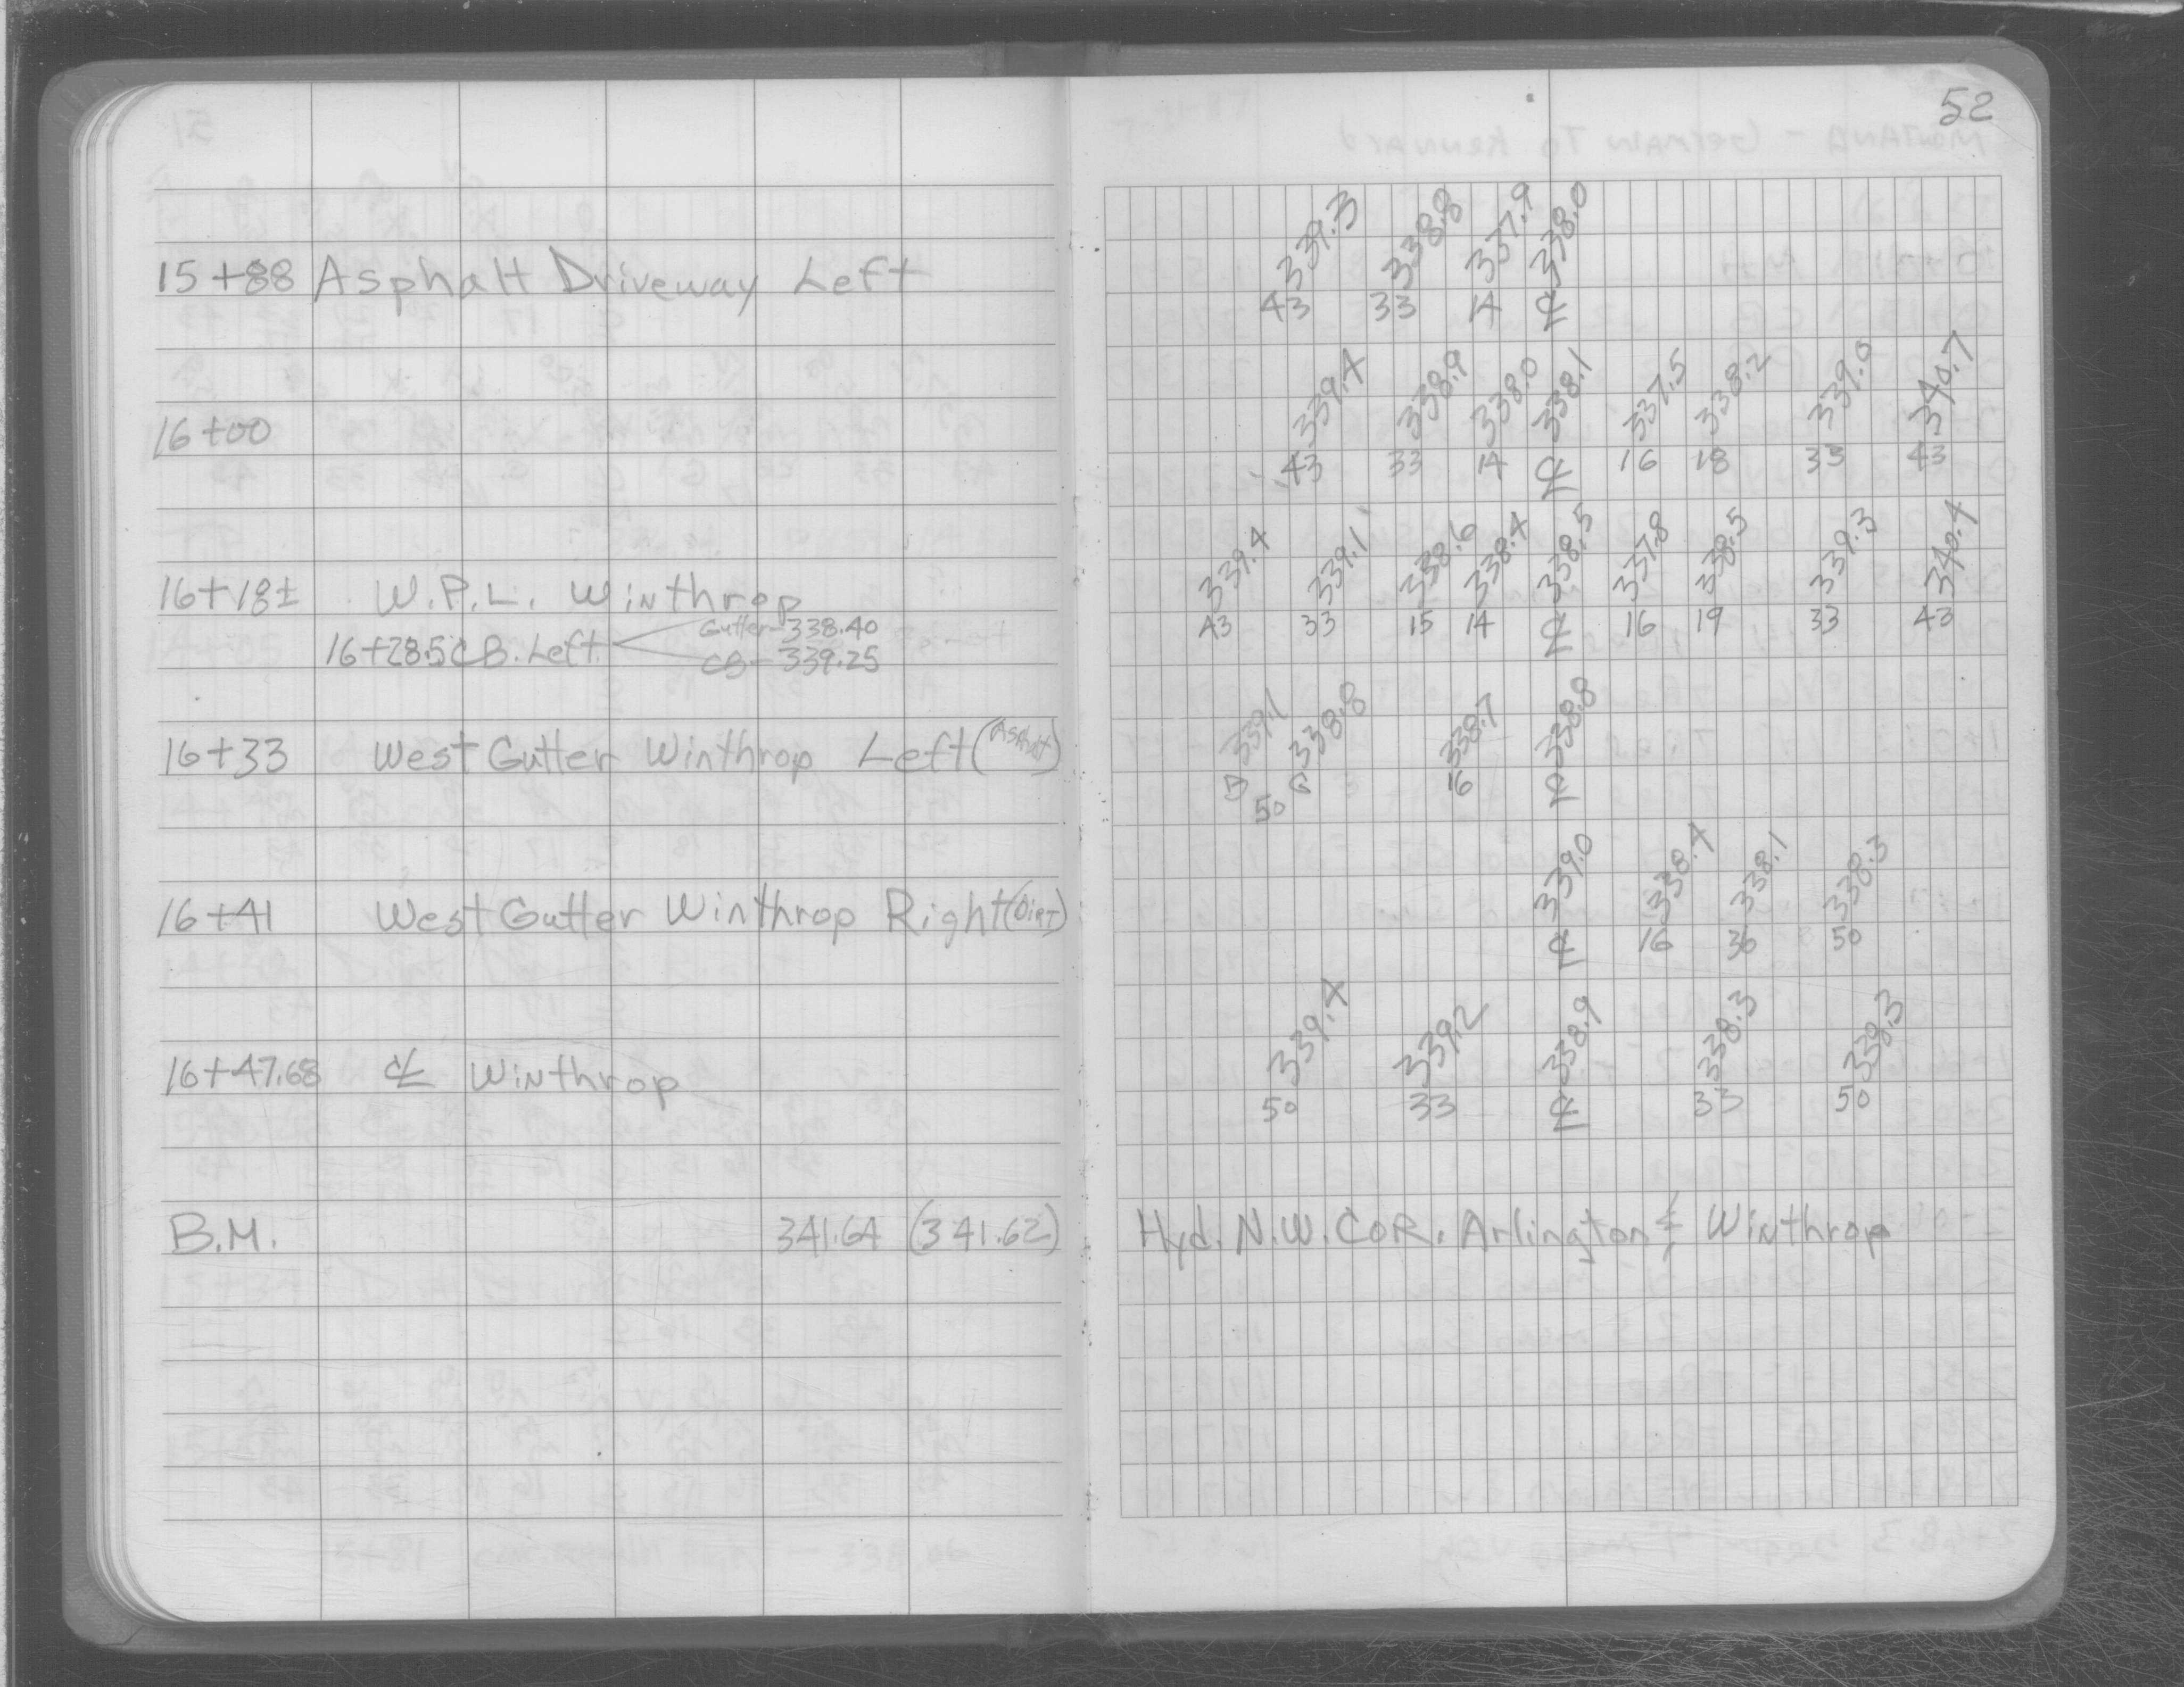 52
15+88 Asphalt Driveway Left
339.3 338.8 337.9 338.0
43 33 14 ℄
16+00
339.4 338.9 338.0 338.1 337.5 338.2 339.0 340.7
43 33 14 ℄ 16 18 33 43
16+18± W.P.L. Winthrop
339.4 339.1 338.6 338.4 338.5 337.8 338.5 339.3 340.4
43 33 15 14 ℄ 16 19 33 43
Gutter-338.40
16+28.5 CB. Left
CB-339.25
16+33 West Gutter Winthrop Left (Asphalt)
339.1 338.8 338.7 338.8
B G 16 ℄
50
16+41 West Gutter Winthrop Right (Dirt)
339.0 338.4 338.1 338.3
℄ 16 30 50
16+47.68 ℄ Winthrop
339.4 339.2 338.9 338.3 338.3
50 33 ℄ 33 50
B.M. 341.64 (341.62) Hyd. N.W. COR. Arlington & Winthrop